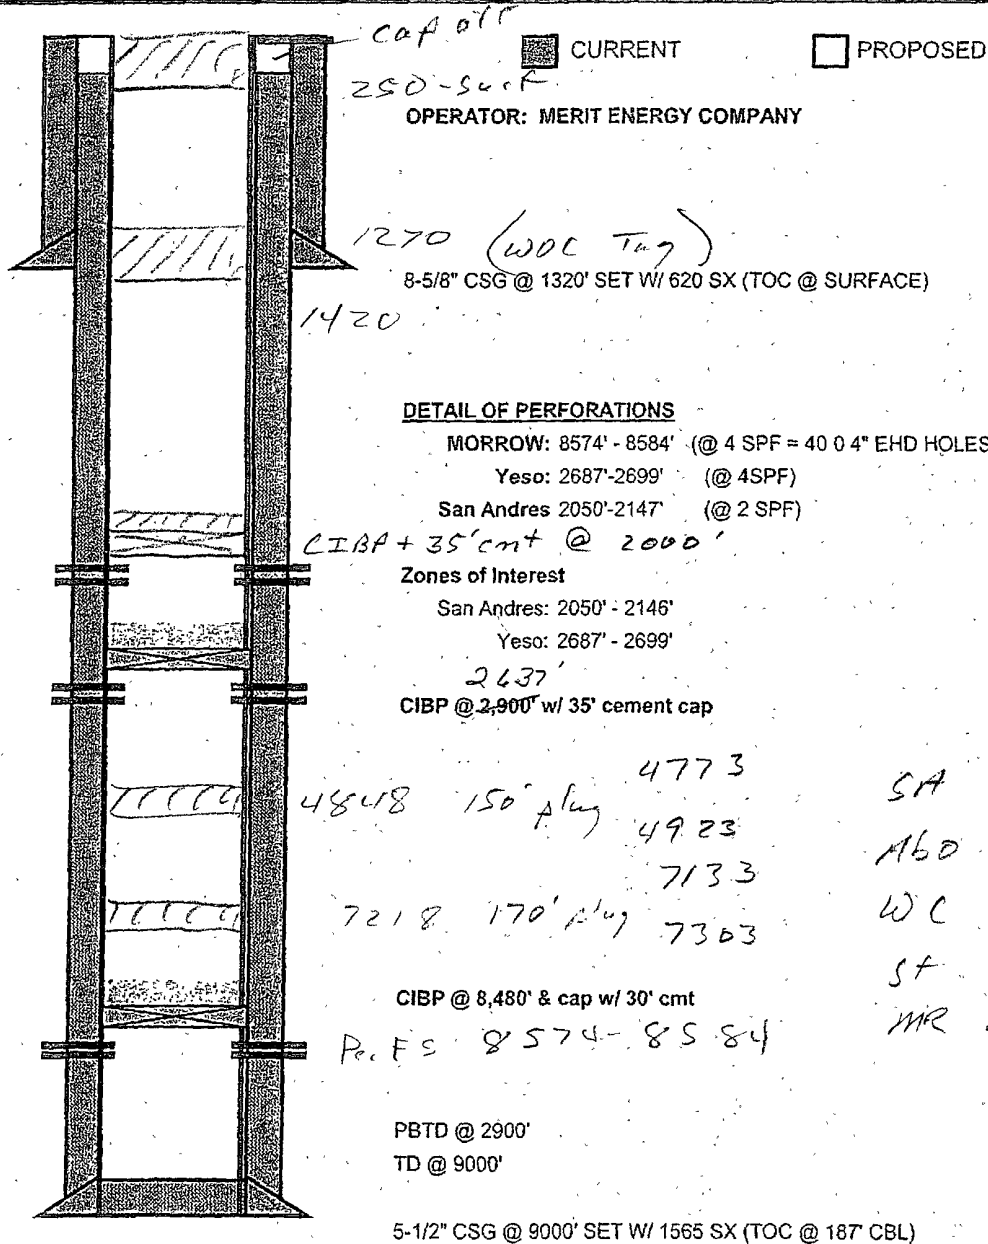 cap off
CURRENT
PROPOSED
250-Surf
OPERATOR: MERIT ENERGY COMPANY
1270 (WOC Tag)
8-5/8" CSG @ 1320' SET W/ 620 SX (TOC @ SURFACE)
1420
DETAIL OF PERFORATIONS
MORROW: 8574' - 8584' (@ 4 SPF = 40 0 4" EHD HOLES
Yeso: 2687'-2699' (@ 4SPF)
San Andres 2050'-2147' (@ 2 SPF)
CIBP + 35' cmt @ 2000'
Zones of Interest
San Andres: 2050' - 2146'
Yeso: 2687' - 2699'
2637'
CIBP @ 2,900' w/ 35' cement cap
4773 SA
4848 150' plug
4923 Abo
7133
7218 170' plug 7303 WC
St
CIBP @ 8,480' & cap w/ 30' cmt
MR
Perfs 8574-8584
PBTD @ 2900'
TD @ 9000'
5-1/2" CSG @ 9000' SET W/ 1565 SX (TOC @ 187' CBL)